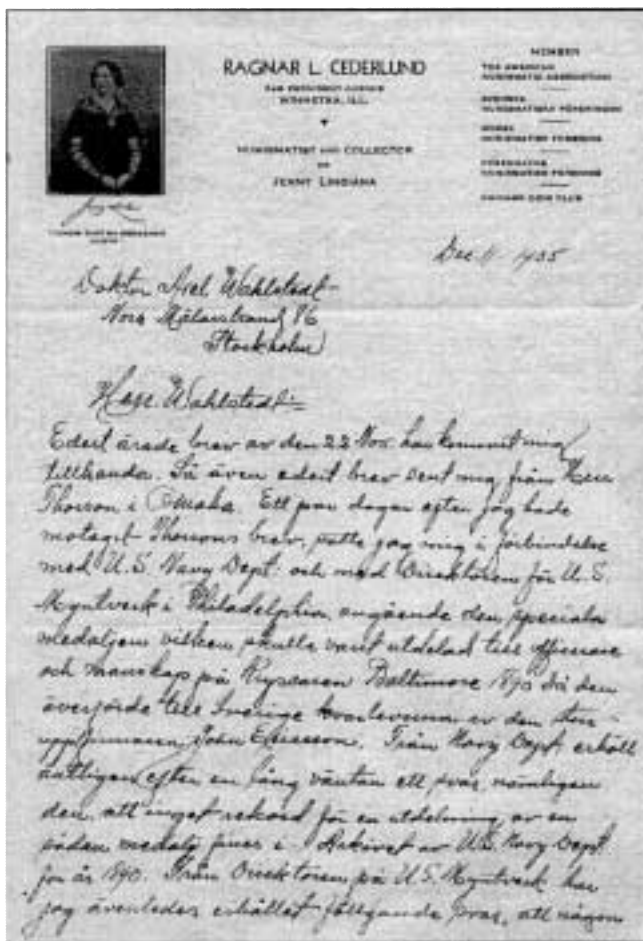 RAGNAR L. CEDERLUND
WINNETKA, ILL.
NUMISMATIST AND COLLECTOR
OF
JENNY LINDIANA
MEMBER
THE AMERICAN
NUMISMATIC ASSOCIATION
SVENSKA
NUMISMATISKA FÖRENINGEN
NORSK
NUMISMATISK FORENING
NUMISMATISK FORENING
CHICAGO COIN CLUB
Dec 11 1935
Doktor Axel Wahlstedt
Norr Mälarstrand 76
Stockholm
Herr Wahlstedt:
Edert ärade brev av den 22 Nov. har kommit mig
tillhanda. Så även edert brev sent mig från Herr
Thorson i Omaha. Ett par dagar efter jag hade
motagit Thorsons brev, satte jag mig i förbindelse
med U.S. Navy Dept. och med Direktören för U.S.
Myntverk i Philadelphia, angående den speciala
medaljen vilken skulle varit utdelad till officerare
och manskap på Kryssaren Baltimore 1890 då den
överförde till Sverige kvarlevorna av den store
uppfinnaren, John Ericsson. Från Navy Dept erhöll
äntligen efter en lång väntan ett svar, nämligen
den, att inget rekord för en utdelning av en
sådan medalj finns i Arkivet av U.S. Navy Dept.
for år 1890. Från Direktören på U.S. Myntverk har
jag ävenledes erhållet följande svar, att någon